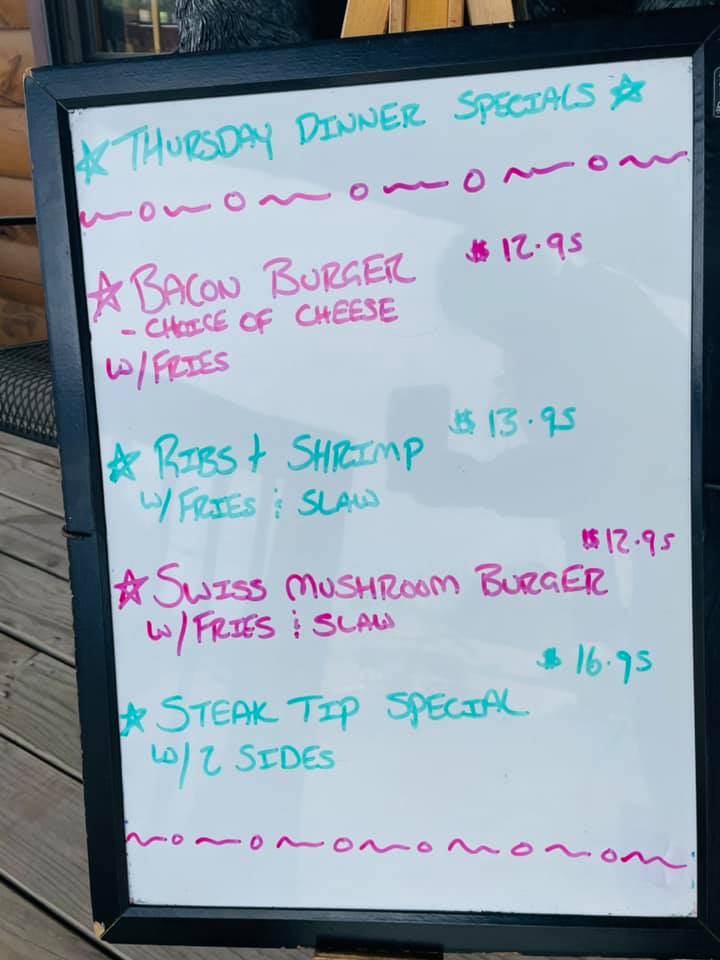 ☆ THURSDAY DINNER SPECIALS ☆
☆ BACON BURGER $12.95
- CHOICE OF CHEESE
W/FRIES
☆ RIBS + SHRIMP $13.95
W/FRIES & SLAW
☆ SWISS MUSHROOM BURGER $12.95
W/FRIES & SLAW
☆ STEAK TIP SPECIAL $16.95
W/2 SIDES